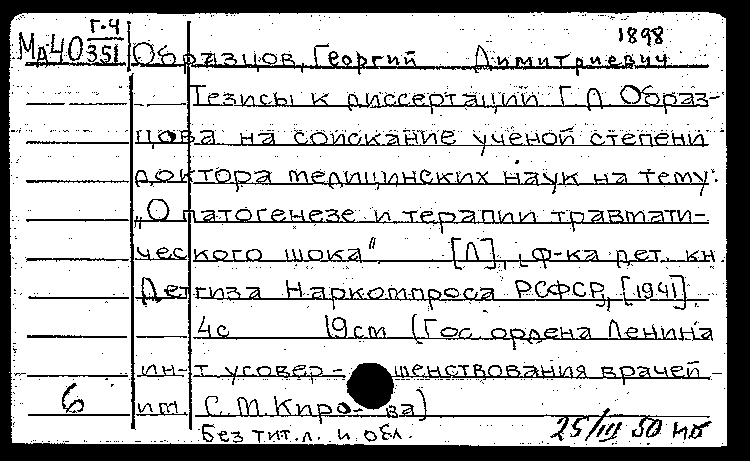 1898
МД40 Г-4/351 Образцов, Георгий Димитриевич
Тезисы к диссертации Г Д Образ-
цова на соискание ученой степени
доктора медицинских наук на тему:
„О патогенезе и терапии травмати-
ческого шока" [Л], ф-ка дет. кн
Детгиза Наркомпроса РСФСР, [1941]
4с 19см (Гос ордена Ленина
ин-т усовер-шенствования врачей
6 им. С.М.Киро-ва)
Без тит.л. и обл.
25/III 50